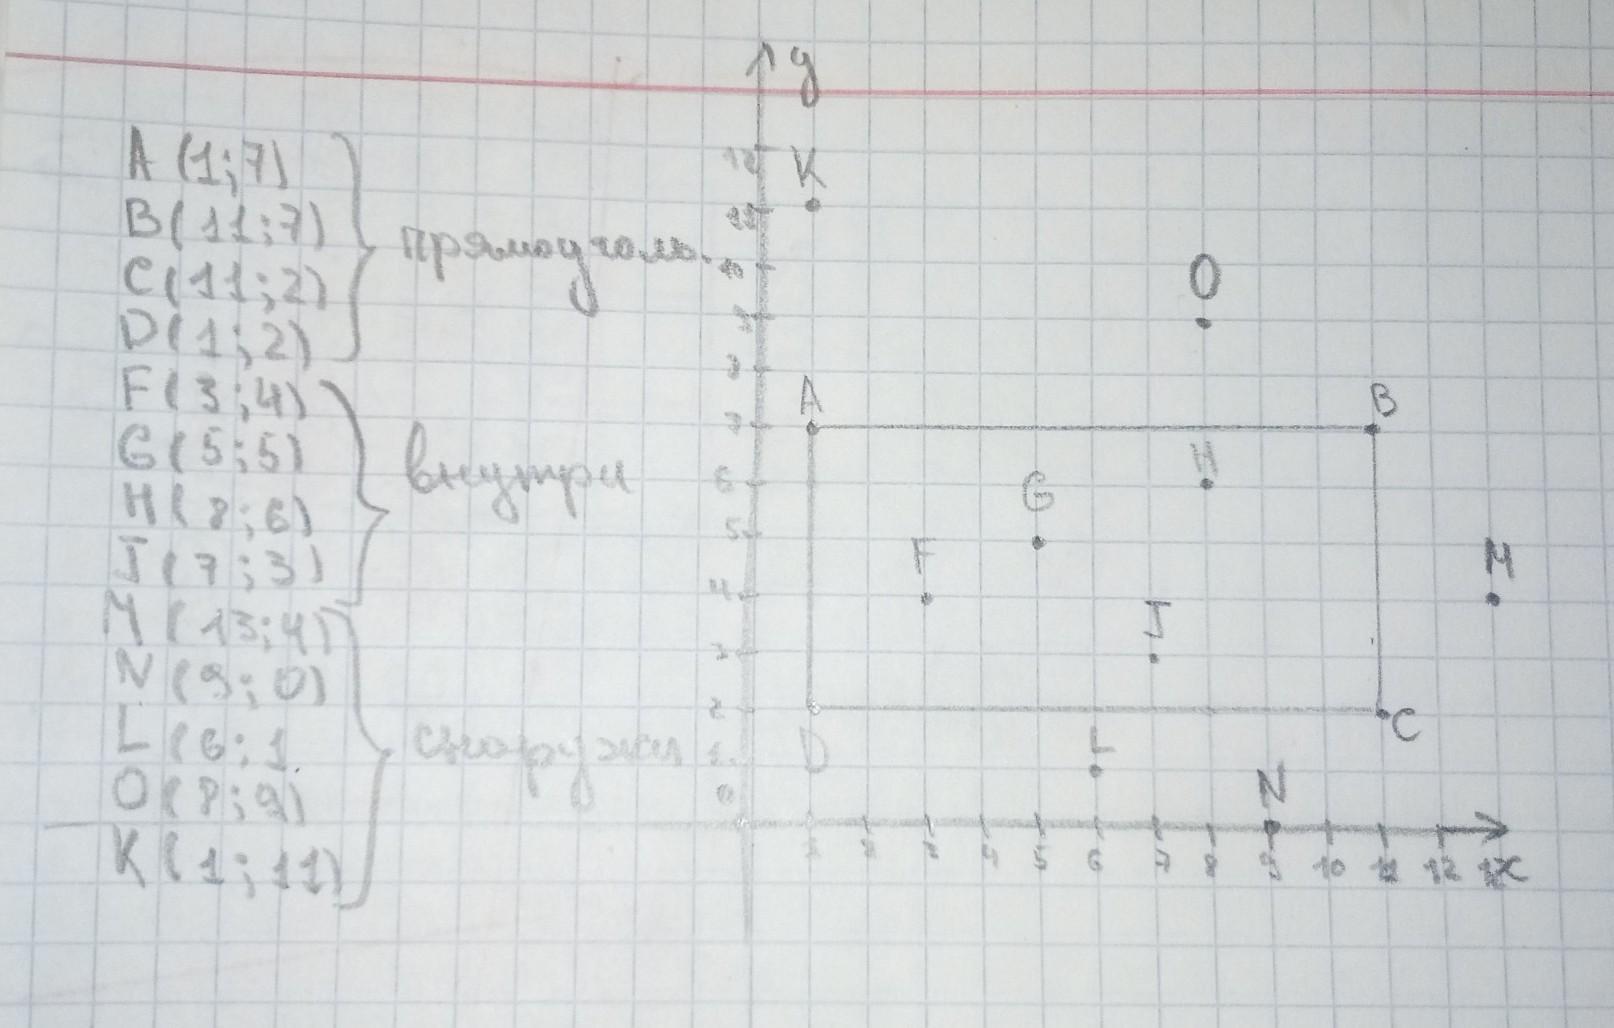 A (1;7)
B(11;7)
C(11;2)
D(1;2)
прямоуголь.
F(3;4)
G(5;5)
H(8;6)
J(7;3)
внутри
M(13;4)
N(9;0)
L(6;1
O(8;9)
K(1;11)
снаружи
y
12
K
11
10
O
9
8
A
B
7
H
6
G
5
F
M
4
J
3
2
C
D
L
1
N
0
1 2 3 4 5 6 7 8 9 10 11 12 x